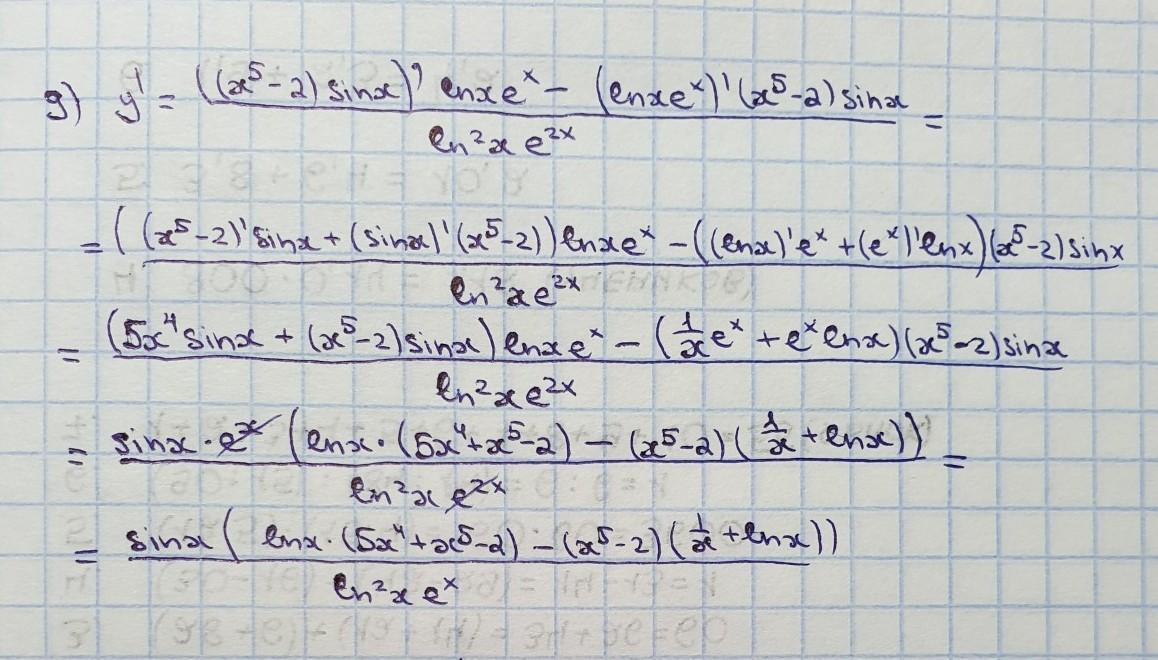 g) y' = ((x⁵-2) sinx)' lnxeˣ - (lnxeˣ)'(x⁵-2) sinx =
ln²x e²ˣ
= ((x⁵-2)' sinx + (sinx)'(x⁵-2)) lnxeˣ - ((lnx)'eˣ + (eˣ)'lnx)(x⁵-2) sinx
ln²xe²ˣ
= (5x⁴ sinx + (x⁵-2) sinx) lnx eˣ - (1/x eˣ + eˣ lnx)(x⁵-2) sinx
ln²xe²ˣ
= sinx · eˣ (lnx · (5x⁴+x⁵-2) - (x⁵-2) (1/x + lnx)) =
ln²x e²ˣ
= sinx ( lnx · (5x⁴+x⁵-2) - (x⁵-2) (1/x + lnx))
ln²x eˣ